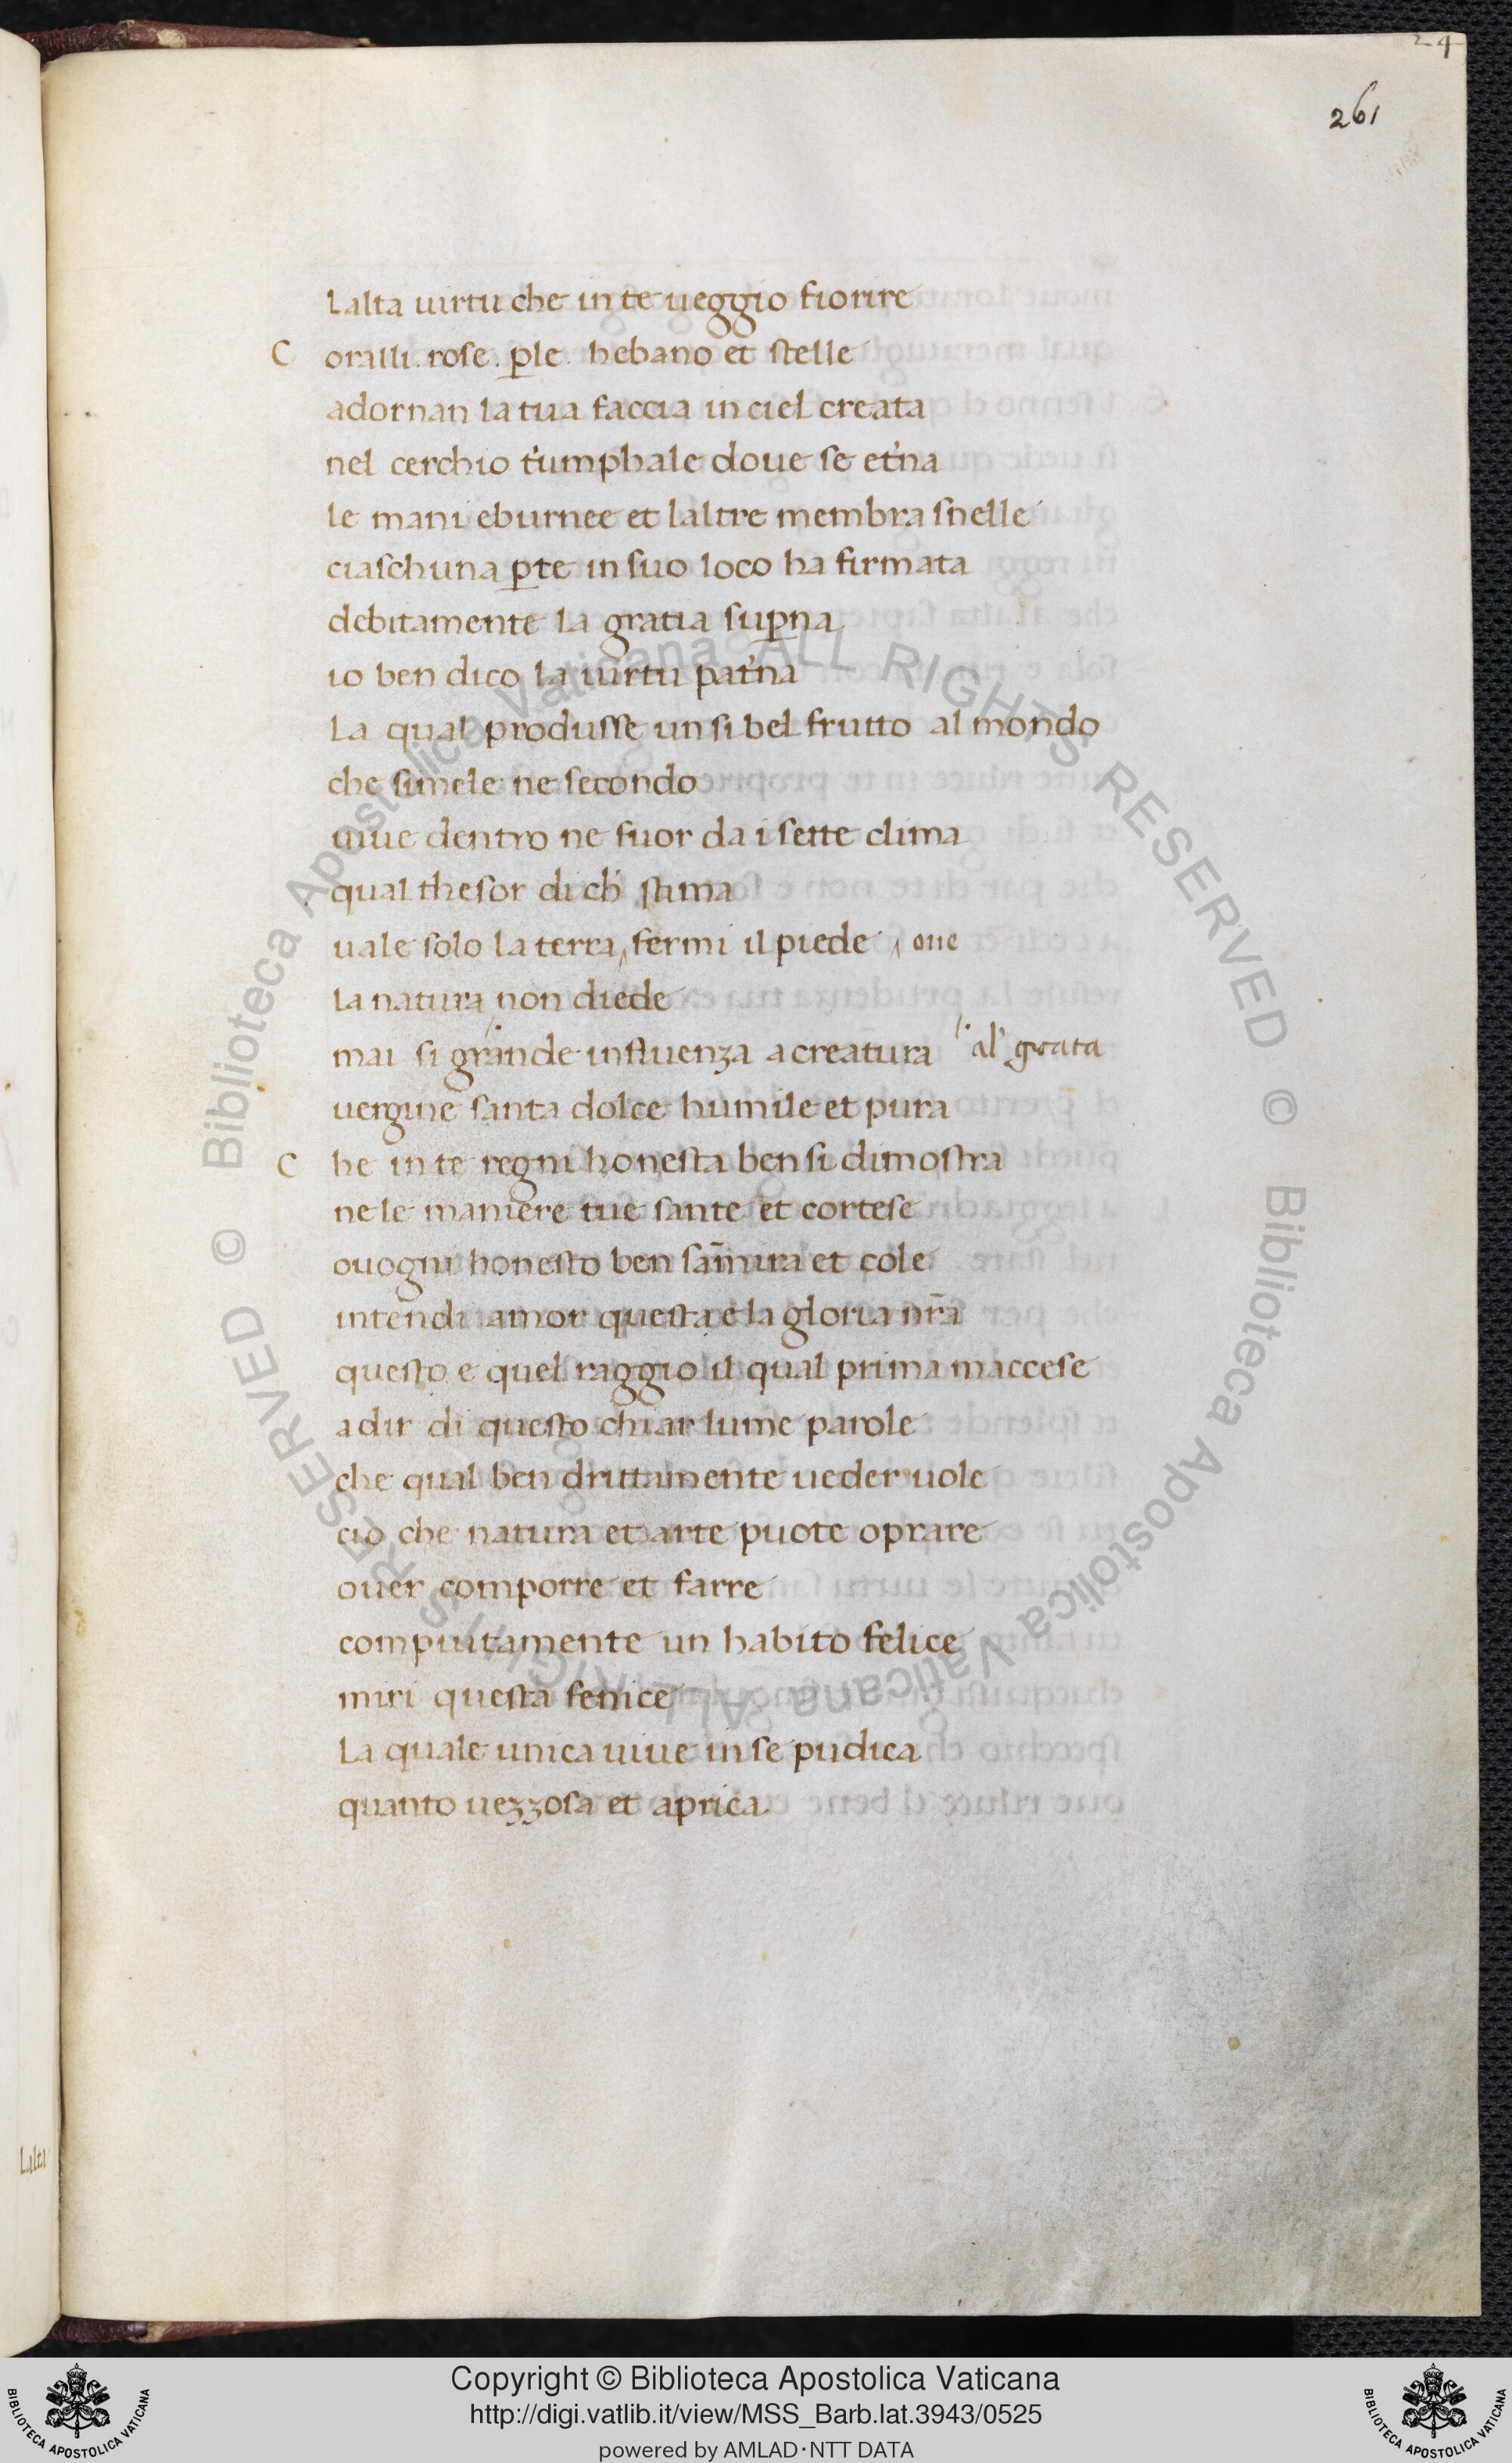 24
261
Lalta uirtu che in te ueggio fiorire
C oralli. rose. ꝑle. hebano et stelle
adornan la tua faccia in ciel creata
nel cerchio t'umphale doue se et'na
le mani eburnee et laltre membra snelle
ciaschuna ꝑte in suo loco ha firmata
debitamente la gratia suꝑna
io ben dico la uirtu pat'na
La qual produsse un si bel frutto al mondo
che simele ne secondo
uiue dentro ne fuor da i sette clima
qual thesor di ch' stima
uale solo la terra ‸ fermi il piede ‸ oue
la natura non diede
mai si grande influenza a creatura al' grata
uergine santa dolce humile et pura
C he in te regni honesta ben si dimostra
ne le maniere tue sante et cortese
ouogni honesto ben sam̄ira et cole
intendi amor questa e la gloria nr̄a
questo e quel raggio il qual prima maccese
a dir di questo chiar lume parole
che qual ben drittamente ueder uole
cio che natura et arte puote oprare
ouer comporre et farre
compiutamente un habito felice
miri questa fenice
La quale unica uiue in se pudica
quanto uezzosa et aprica.
Lalta
© Biblioteca Apostolica Vaticana ALL RIGHTS RESERVED © Biblioteca Apostolica Vaticana ALL RIGHTS RESERVED
Copyright © Biblioteca Apostolica Vaticana
http://digi.vatlib.it/view/MSS_Barb.lat.3943/0525
powered by AMLAD·NTT DATA
BIBLIOTECA APOSTOLICA VATICANA
BIBLIOTECA APOSTOLICA VATICANA